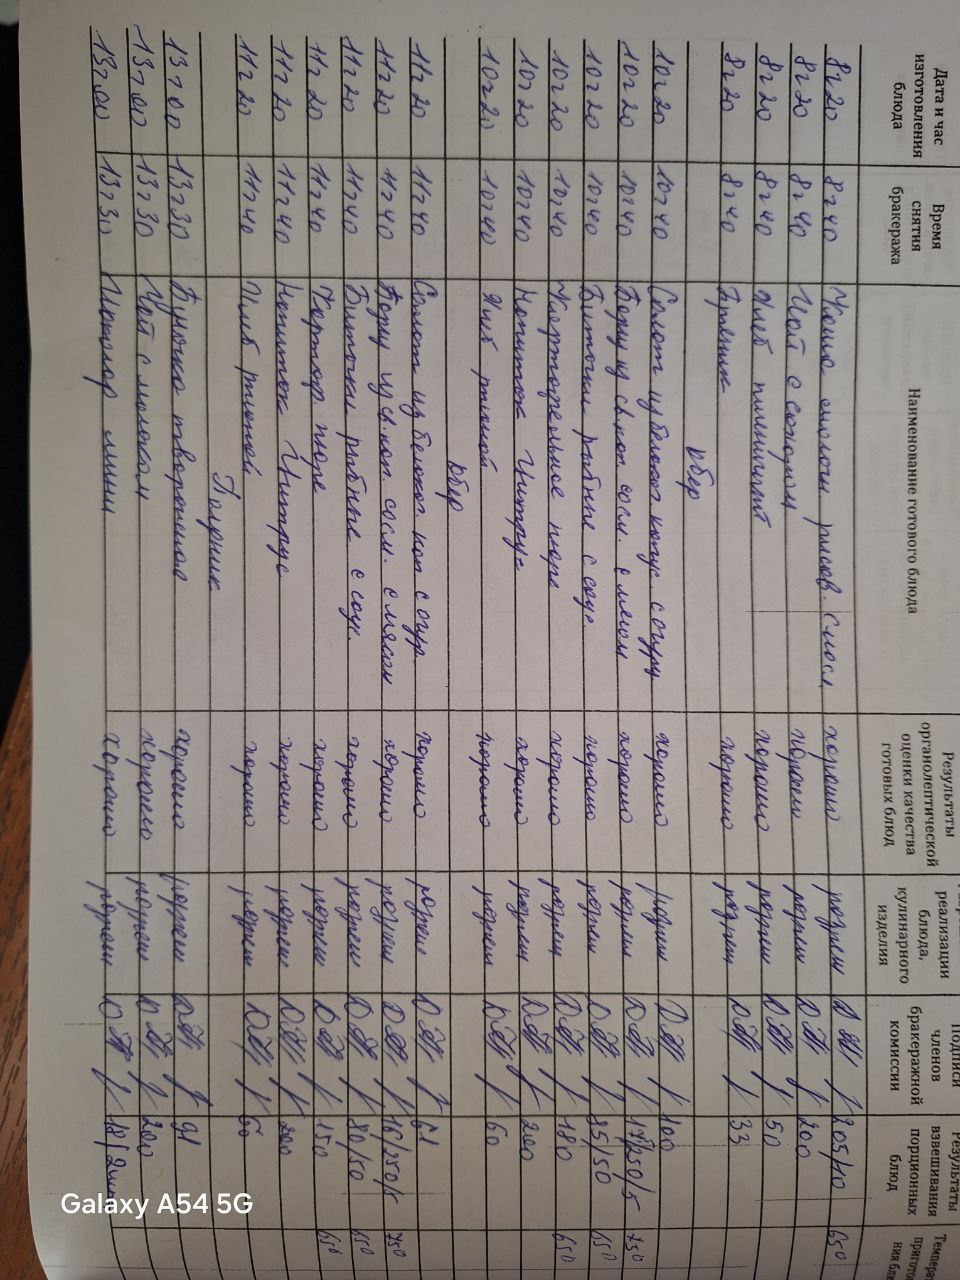 Дата и час изготовления блюда | Время снятия бракеража | Наименование готового блюда | Результаты органолептической оценки качества готовых блюд | реализации блюда, кулинарного изделия | Подписи членов бракеражной комиссии | Результаты взвешивания порционных блюд | Темпера пригото ния бл
8ч20 | 8ч40 | Каша молочн рисов. с масл | хорошо | разреш | 205/10 | 650
8ч20 | 8ч40 | Чай с сахаром | хорошо | разреш | 200
8ч20 | 8ч40 | Хлеб пшеничный | хорошо | разреш | 50
8ч20 | 8ч40 | хорошо | разреш | 33
обед
10ч20 | 10ч40 | Салат из белокоч капус. с огурц | хорошо | разреш | 100
10ч20 | 10ч40 | Борщ из св. кап со см. с мясом | хорошо | разреш | /250/5 | 750
10ч20 | 10ч40 | Биточки рыбные с соус | хорошо | разреш | 95/50 | 650
10ч20 | 10ч40 | Картофельное пюре | хорошо | разреш | 180 | 650
10ч20 | 10ч40 | Напиток Цитрус | хорошо | разреш | 200
10ч20 | 10ч40 | Хлеб ржаной | хорошо | разреш | 60
обед
11ч20 | 11ч40 | Салат из белокоч. кап с огур. | хорошо | разреш | 61
11ч20 | 11ч40 | Борщ из св. кап. со см. с мясом | хорошо | разреш | 16/250/5 | 750
11ч20 | 11ч40 | Биточки рыбные с соус | хорошо | разреш | 80/50 | 650
11ч20 | 11ч40 | Картоф пюре | хорошо | разреш | 150 | 650
11ч20 | 11ч40 | Напиток Цитрус | хорошо | разреш | 200
11ч20 | 11ч40 | Хлеб ржаной | хорошо | разреш | 60
Полдник
13ч00 | 13ч30 | Булочка творожная | хорошо | разреш | 91
13ч00 | 13ч30 | Чай с молоком | хорошо | разреш | 200
13ч00 | 13ч30 | Шоколад мини | хорошо | разреш | 18/2
Galaxy A54 5G